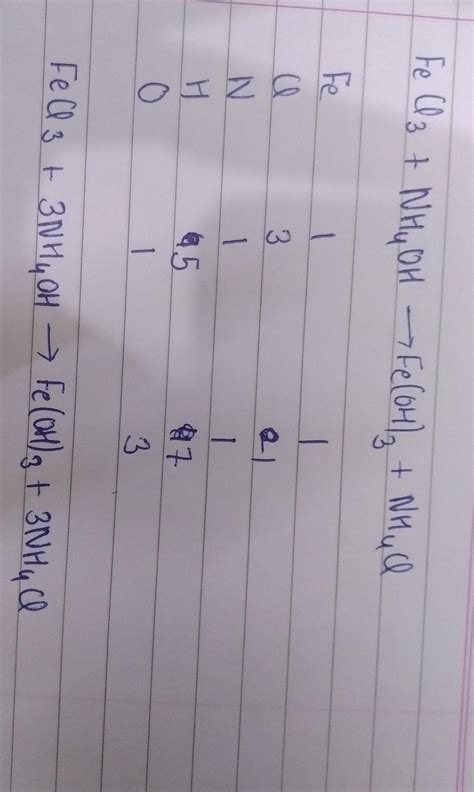 FeCl3 + NH4OH → Fe(OH)3 + NH4Cl
Fe 1 1
Cl 3 1
N 1 1
H 5 7
O 1 3
FeCl3 + 3NH4OH → Fe(OH)3 + 3NH4Cl